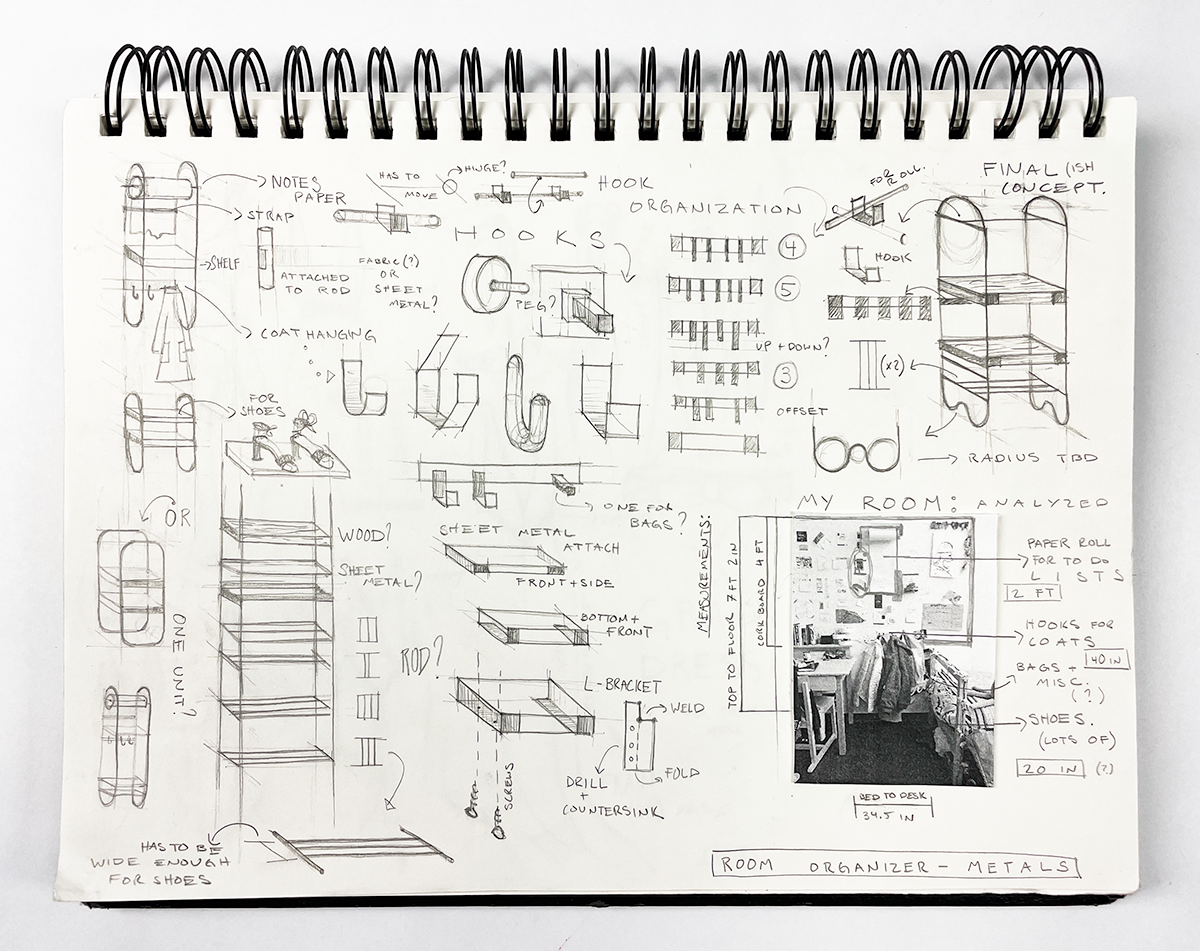 NOTES
PAPER
STRAP
SHELF
ATTACHED
TO ROD
FABRIC(?)
OR
SHEET
METAL?
COAT HANGING
HAS TO
MOVE
HINGE?
HOOK
HOOKS
PEG?
FOR
SHOES
OR
ONE UNIT?
WOOD?
SHEET
METAL?
ROD?
HAS TO BE
WIDE ENOUGH
FOR SHOES
ONE FOR
BAGS?
SHEET METAL
ATTACH
FRONT + SIDE
BOTTOM +
FRONT
L-BRACKET
WELD
FOLD
DRILL
+
COUNTERSINK
SCREWS
ORGANIZATION
4
5
UP + DOWN?
3
OFFSET
FOR
ROLL.
HOOK
(x2)
FINAL(ISH
CONCEPT.
RADIUS TBD
MY ROOM: ANALYZED
MEASUREMENTS:
TOP TO FLOOR 7FT 2IN
CORK BOARD 4 FT
PAPER ROLL
FOR TO DO
LISTS
2 FT
HOOKS FOR
COATS
40 IN
BAGS +
MISC.
(?)
SHOES.
(LOTS OF)
20 IN (?)
BED TO DESK
34.5 IN
ROOM ORGANIZER - METALS